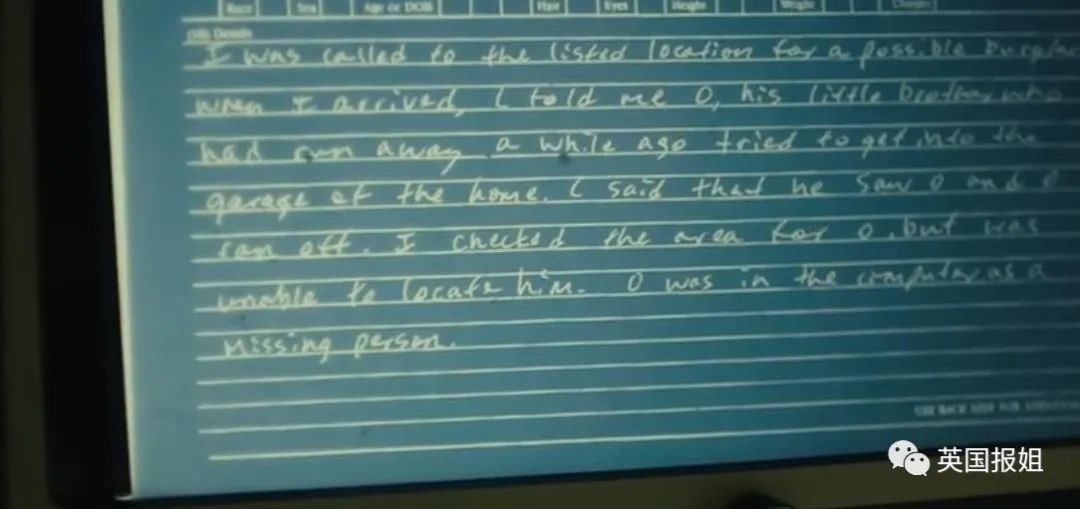 Race Sex Age or DOB Hair Eyes Height Weight
Details
I was called to the listed location for a possible burglar
when I arrived, C told me O, his little brother who
had run away a while ago tried to get into the
garage of the home. C said that he saw O and O
ran off. I checked the area for O, but was
unable to locate him. O was in the computer as a
missing person.
USE BACK SIDE FOR
英国报姐